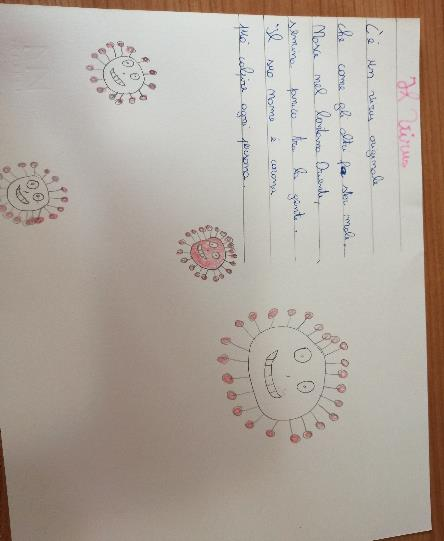 Il Virus
C'è un virus originale
che come gli altri fa star male.
Nasce nel lontano Oriente,
semina panico tra la gente.
Il suo nome è corona
può colpire ogni persona.